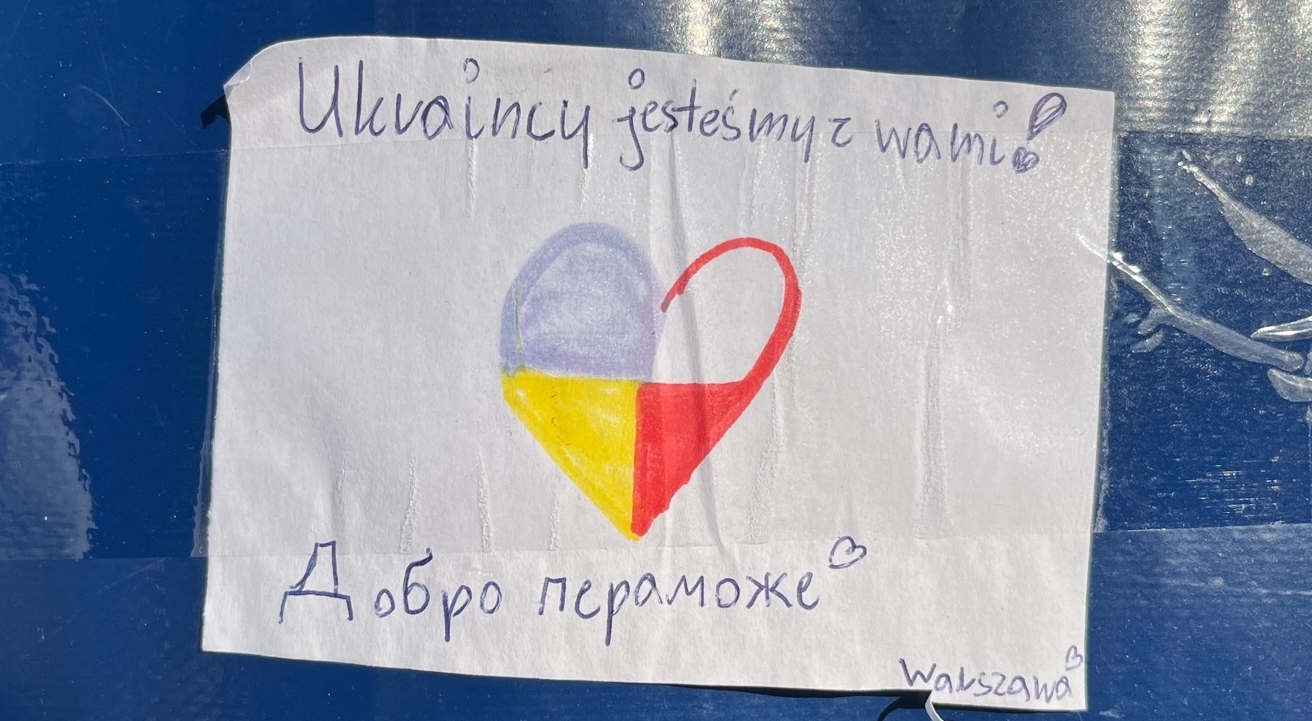 Ukraincy jesteśmy z wami!
Добро пераможе
Warszawa